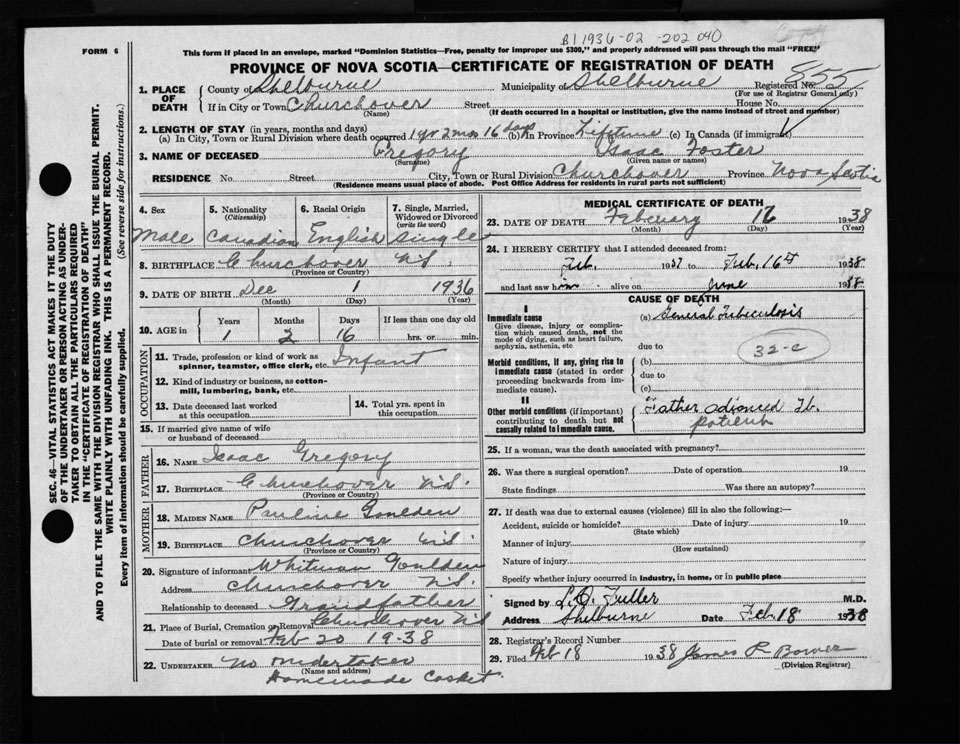 B1 1936-02 -202040
COPY
FORM 6
This form if placed in an envelope, marked "Dominion Statistics—Free, penalty for improper use $300," and properly addressed will pass through the mail "FREE"
PROVINCE OF NOVA SCOTIA—CERTIFICATE OF REGISTRATION OF DEATH
855
1. PLACE OF DEATH
County of Shelburne Municipality of Shelburne Registered No.
(For use of Registrar General only)
If in City or Town Churchover Street House No.
(Name) (If death occurred in a hospital or institution, give the name instead of street and number)
2. LENGTH OF STAY (in years, months and days)
(a) In City, Town or Rural Division where death occurred 1 yr 2 mos 16 days (b) In Province Lifetime (c) In Canada (if immigrant)
3. NAME OF DECEASED Gregory Isaac Foster
(Surname) (Given name or names)
RESIDENCE No. Street City, Town or Rural Division Churchover Province Nova Scotia
(Residence means usual place of abode. Post Office Address for residents in rural parts not sufficient)
4. Sex
Male
5. Nationality
(Citizenship)
Canadian
6. Racial Origin
English
7. Single, Married, Widowed or Divorced
(write the word)
Single
8. BIRTHPLACE Churchover N.S.
(Province or Country)
9. DATE OF BIRTH Dec 1 1936
(Month) (Day) (Year)
10. AGE in
Years Months Days If less than one day old
1 2 16 hrs. or min.
OCCUPATION
11. Trade, profession or kind of work as spinner, teamster, office clerk, etc. Infant
12. Kind of industry or business, as cotton-mill, lumbering, bank, etc.
13. Date deceased last worked at this occupation
14. Total yrs. spent in this occupation
15. If married give name of wife or husband of deceased
FATHER
16. NAME Isaac Gregory
17. BIRTHPLACE Churchover N.S.
(Province or Country)
MOTHER
18. MAIDEN NAME Pauline Goulden
19. BIRTHPLACE Churchover N.S.
(Province or Country)
20. Signature of informant Whitman Goulden
Address Churchover N.S.
Relationship to deceased Grandfather
21. Place of Burial, Cremation or Removal Churchover N.S
Date of burial or removal Feb 20 1938
22. UNDERTAKER No Undertaker
(Name and address)
Homemade Casket.
MEDICAL CERTIFICATE OF DEATH
23. DATE OF DEATH Febuary 16 1938
(Month) (Day) (Year)
24. I HEREBY CERTIFY that I attended deceased from:
Feb. 1937 to Feb. 16th 1938
and last saw him alive on June 1938
CAUSE OF DEATH
I
Immediate cause
Give disease, injury or complication which caused death, not the mode of dying, such as heart failure, asphyxia, asthenia, etc
(a) General Tuberculosis
due to
32-c
Morbid conditions, if any, giving rise to immediate cause (stated in order proceeding backwards from immediate cause).
(b)
due to
(c)
II
Other morbid conditions (if important) contributing to death but not causally related to immediate cause.
Father advanced Tb. patient
25. If a woman, was the death associated with pregnancy?
26. Was there a surgical operation? Date of operation 19
State findings Was there an autopsy?
27. If death was due to external causes (violence) fill in also the following:—
Accident, suicide or homicide? Date of injury 19
(State which)
Manner of injury
(How sustained)
Nature of injury
Specify whether injury occurred in industry, in home, or in public place
Signed by L.O. Fuller M.D.
Address Shelburne Date Feb. 18 1938
28. Registrar's Record Number
29. Filed Feb 18 1938 James R Bower
(Division Registrar)
SEC. 46—VITAL STATISTICS ACT MAKES IT THE DUTY
OF THE UNDERTAKER OR PERSON ACTING AS UNDER-
TAKER TO OBTAIN ALL THE PARTICULARS REQUIRED
IN THE "CERTIFICATE OF REGISTRATION OF DEATH"
AND TO FILE THE SAME WITH THE DIVISION REGISTRAR WHO SHALL ISSUE THE BURIAL PERMIT.
WRITE PLAINLY WITH UNFADING INK. THIS IS A PERMANENT RECORD.
Every item of information should be carefully supplied. (See reverse side for instructions.)